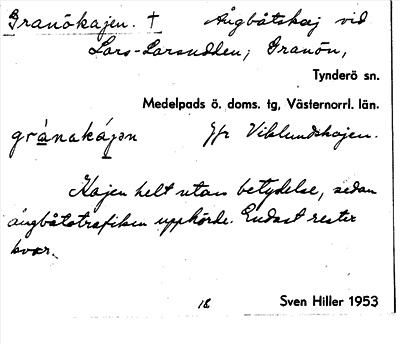 Granökajen. † Ångbåtskaj vid
Lars-Larsudden, Granön,
Tynderö sn.
Medelpads ö. doms. tg, Västernorrl. län.
grànakájən Jfr Viklundskajen.
Kajen helt utan betydelse, sedan
ångbåtstrafiken upphörde. Endast rester
kvar.
18 Sven Hiller 1953